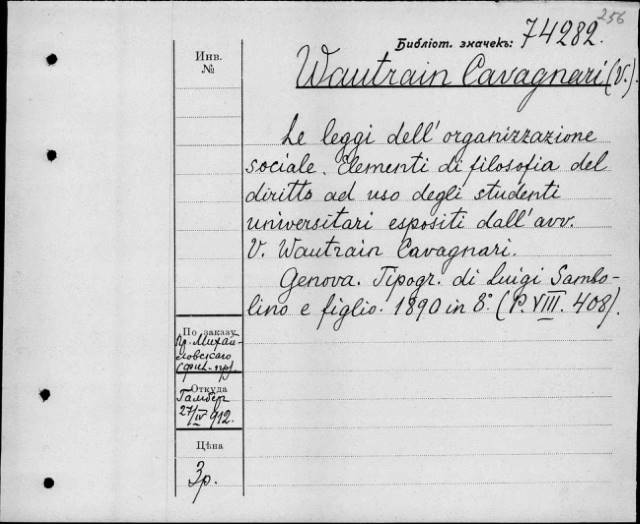 256
Библіот. значекъ: 74282.
Инв.
№
Wautrain Cavagnari (V.).
Le leggi dell'organizzazione
sociale. Elementi di filosofia del
diritto ad uso degli studenti
universitari espositi dall'avv.
V. Wautrain Cavagnari.
Genova. Tipogr. di Luigi Sambo-
lino e figlio. 1890 in 8° (P. VIII. 408).
По заказу
пр. Михай-
ловскаго
(фил.-пр).
Откуда
Гамбер
27/IV 912.
Цѣна
3р.